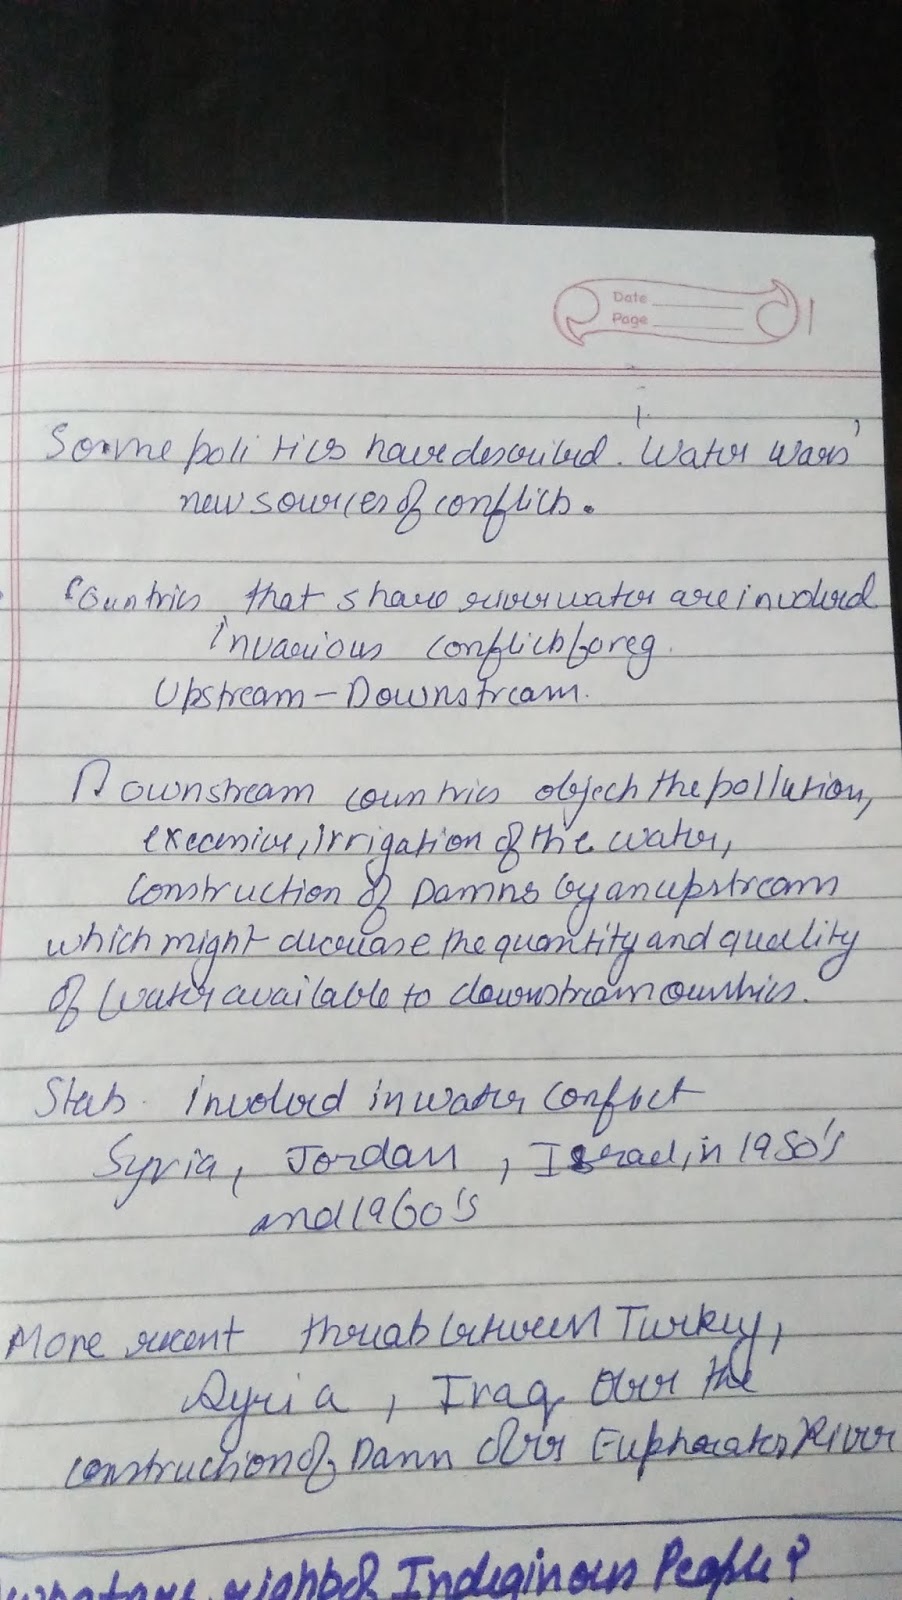 Date
Page
Some politics have described 'Water wars'
new sources of conflicts.
Countries that share river water are involved
in various conflicts for eg.
Upstream - Downstream.
Downstream countries objects the pollution,
excessive, irrigation of the water,
construction of Damns by an upstream
which might decrease the quantity and quality
of water available to downstream countries.
States involved in water conflict
Syria, Jordan, Israel, in 1950's
and 1960's
More recent threats between Turkey,
Syria, Iraq over the
construction of Damn over Euphorates River
what are rights of Indeginous People?